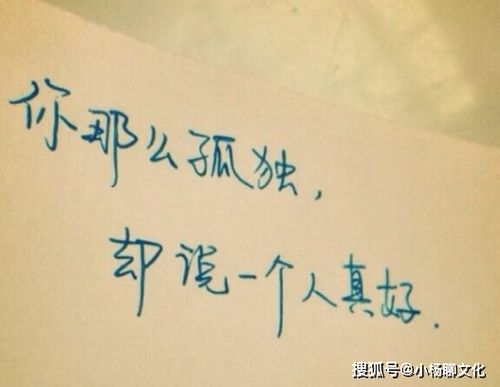 你那么孤独，
却说一个人真好.
搜狐号@小杨聊文化